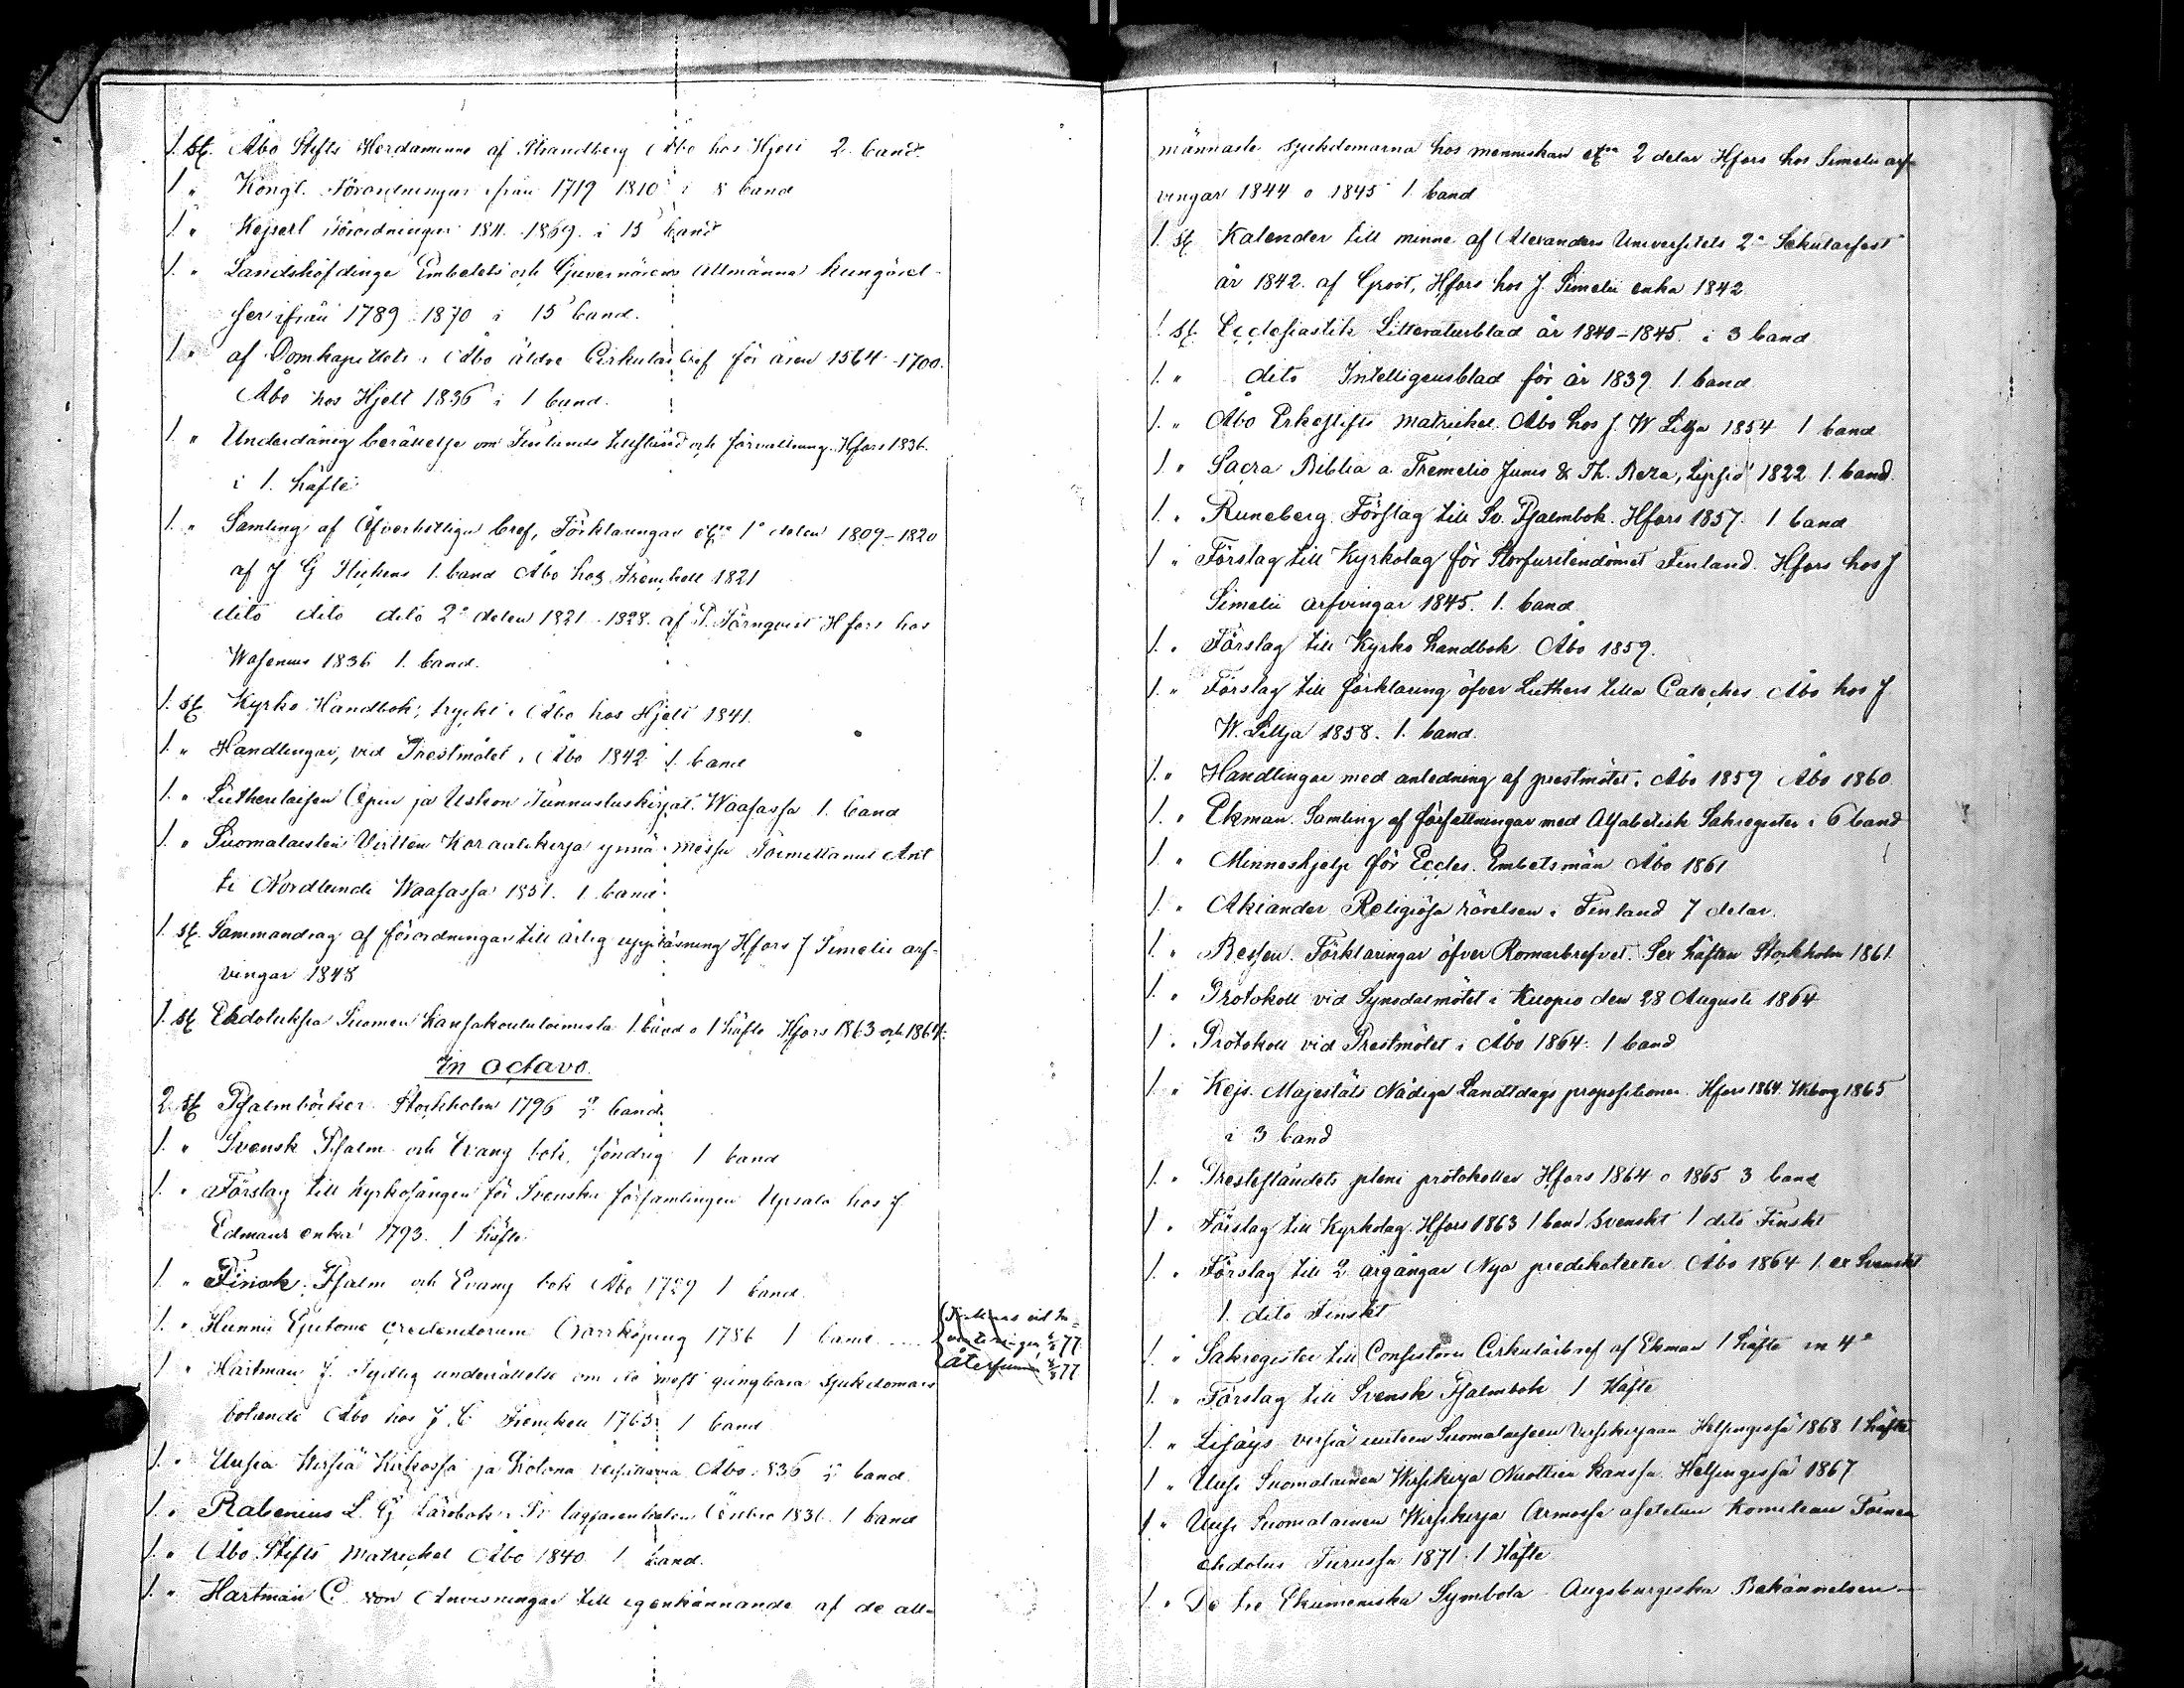 1 st. Åbo Stifts Herdaminne af Strandberg Åbo hos Hjelt 2 band.
1 " Kongl. Förordningar från 1719 1810 i 8 band
1 " Kejserl Förordningar 1811 - 1869 i 15 band
1 " Landshöfdinge Embetets och Guvernörens Allmänna kungörel-
ser ifrån 1789 - 1870 i 15 band.
1 " af Domkapitlets i Åbo äldre Cirkulär bref för åren 1564-1700.
Åbo hos Hjelt 1836 i 1 band.
1 " Underdånig berättelse om Finlands tillstånd och förvaltning. Hfors 1836.
i 1. häfte
1 " Samling af Öfverhetliga bref, Förklaringar etc 1a delen 1809-1820
af J G 1. band Åbo hos Frenckell 1821
dito dito dito 2a delen 1821 - 1828. af P. Törnqvist Hfors hos
Wasenius 1836 1. band.
1. st Kyrko Handbok, tryckt i Åbo hos Hjelt 1841.
1. " Handlingar, vid Prestmötet i Åbo 1842 1. band
1. " Lutherilaisen Opin ja Uskon Tunnustuskirjat. Waasassa 1. band
1. " Suomalaisten Virtten Koraalikirja ynnä messu Toimittanut Ant
ti Nordlundi Waasassa 1851. 1. band
1. st. Sammandrag af förordningar till årlig uppläsning Hfors J Simelii arf-
vingar 1848
1. st Ehdotuksia Suomen kansakoulutoimesta 1. band o 1 häfte Hfors 1863 och 1864.
In octavo.
2. st Psalmböcker. Stockholm 1796 2 band
1. " Svensk Psalm och Evang bok, söndrig 1 band
1. " Förslag till kyrkosången för Svenska församlingen Upsala hos J
Edmans enka 1793. 1 häfte
1 " Finsk Psalm och Evang bok Åbo 1729 1 band.
1. " Hunnii Epitome credendorum Norrköping 1786 1 band .... vid In-
venteringen 77
1 " Hartman J. Tydlig underrättelse om de mest gångbara Sjukdomars återfunnen 77
botande Åbo hos J. C Frenckell 1765 1 band
1. " Uusia Wirsiä Kirkossa ja Kotona Åbo 1836 2 band.
1. " Rabenius L. G lärobok i Sv lagfarenheten Örebro 1836. 1 band
1. " Åbo Stifts Matrickel Åbo 1840 1 band.
1. " Hartman C. von Anvisningar till igenkännande af de all-
männaste sjukdomarna hos menniskan etc 2 delar Hfors hos Simelii arf
vingar 1844 o 1845 1. band
1. st Kalender till minne af Alexanders Universitets 2a Sekularfest
år 1842. af Groot, Hfors hos J. Simelii enka 1842
1. st. Ecclesiastik Litteraturblad år 1840-1845. i 3 band
1. " dito Intelligensblad för år 1839 1. band
1. " Åbo Erkestifts matrickel. Åbo hos J. W Lillja 1854 1 band
1. " Sacra Biblia a. Tremelio Junio & Th. Beza, Lipsiæ 1822 1. band.
1. " Runeberg Förslag till Sv. Psalmbok. Hfors 1857. 1 band
1 " Förslag till Kyrkolag för Storfurstendömet Finland. Hfors hos J
Simelii arfvingar 1845. 1. band
1. " Förslag till Kyrko handbok Åbo 1859.
1. " Förslag till förklaring öfver Luthers lilla Cateches. Åbo hos J
W. Lillja 1858. 1. band.
1. " Handlingar med anledning af prestmötet i Åbo 1859 Åbo 1860
1. " Ekman. Samling af författningar med Alfabetisk Sakregister i 6 band
1. " Minneshjelp för Eccles. Embetsmän Åbo 1861
1. " Akiander Religiösa rörelsen i Finland 7 delar.
1. " Besser. Förklaringar öfver Romarbrefvet. Sex häften Stockholm 1861.
1. " Protokoll vid Synodalmötet i Kuopio den 28 Augusti 1864
1. " Protokoll vid Prestmötet i Åbo 1864. 1 band
1. " Kejs. Majestäts Nådiga Landtdags propositioner. Hfors 1864. Wiborg 1865
i 3 band
1. " Presteståndets pleni protokoller Hfors 1864 o 1865 3 band
1. " Förslag till Kyrkolag. Hfors 1863 1 band Svenskt 1 dito Finskt
1. " Förslag till 2 årgångar Nya predikotexter Åbo 1864 1. ex Svenskt
1. dito Finskt
1. " Sakregister till Consistorii Cirkulärbref af Ekman 1 häfte in 4o
1. " Förslag till Svensk Psalmbok 1 Häfte
1. " Lisäys virsiä uuteen Suomalaiseen Virsikirjaan Helsingissä 1868 1 häfte
1 " Uusi Suomalainen Wirsikirja Nuottien kanssa. Helsingissä 1867
1 " Uusi Suomalainen Wirsikirja Armossa asetetun Komitean Toinen
ehdotus Turussa 1871. 1. Häfte
1. " De tre Ekumeniska Symbola - Augsburgiska Bekännelsen -